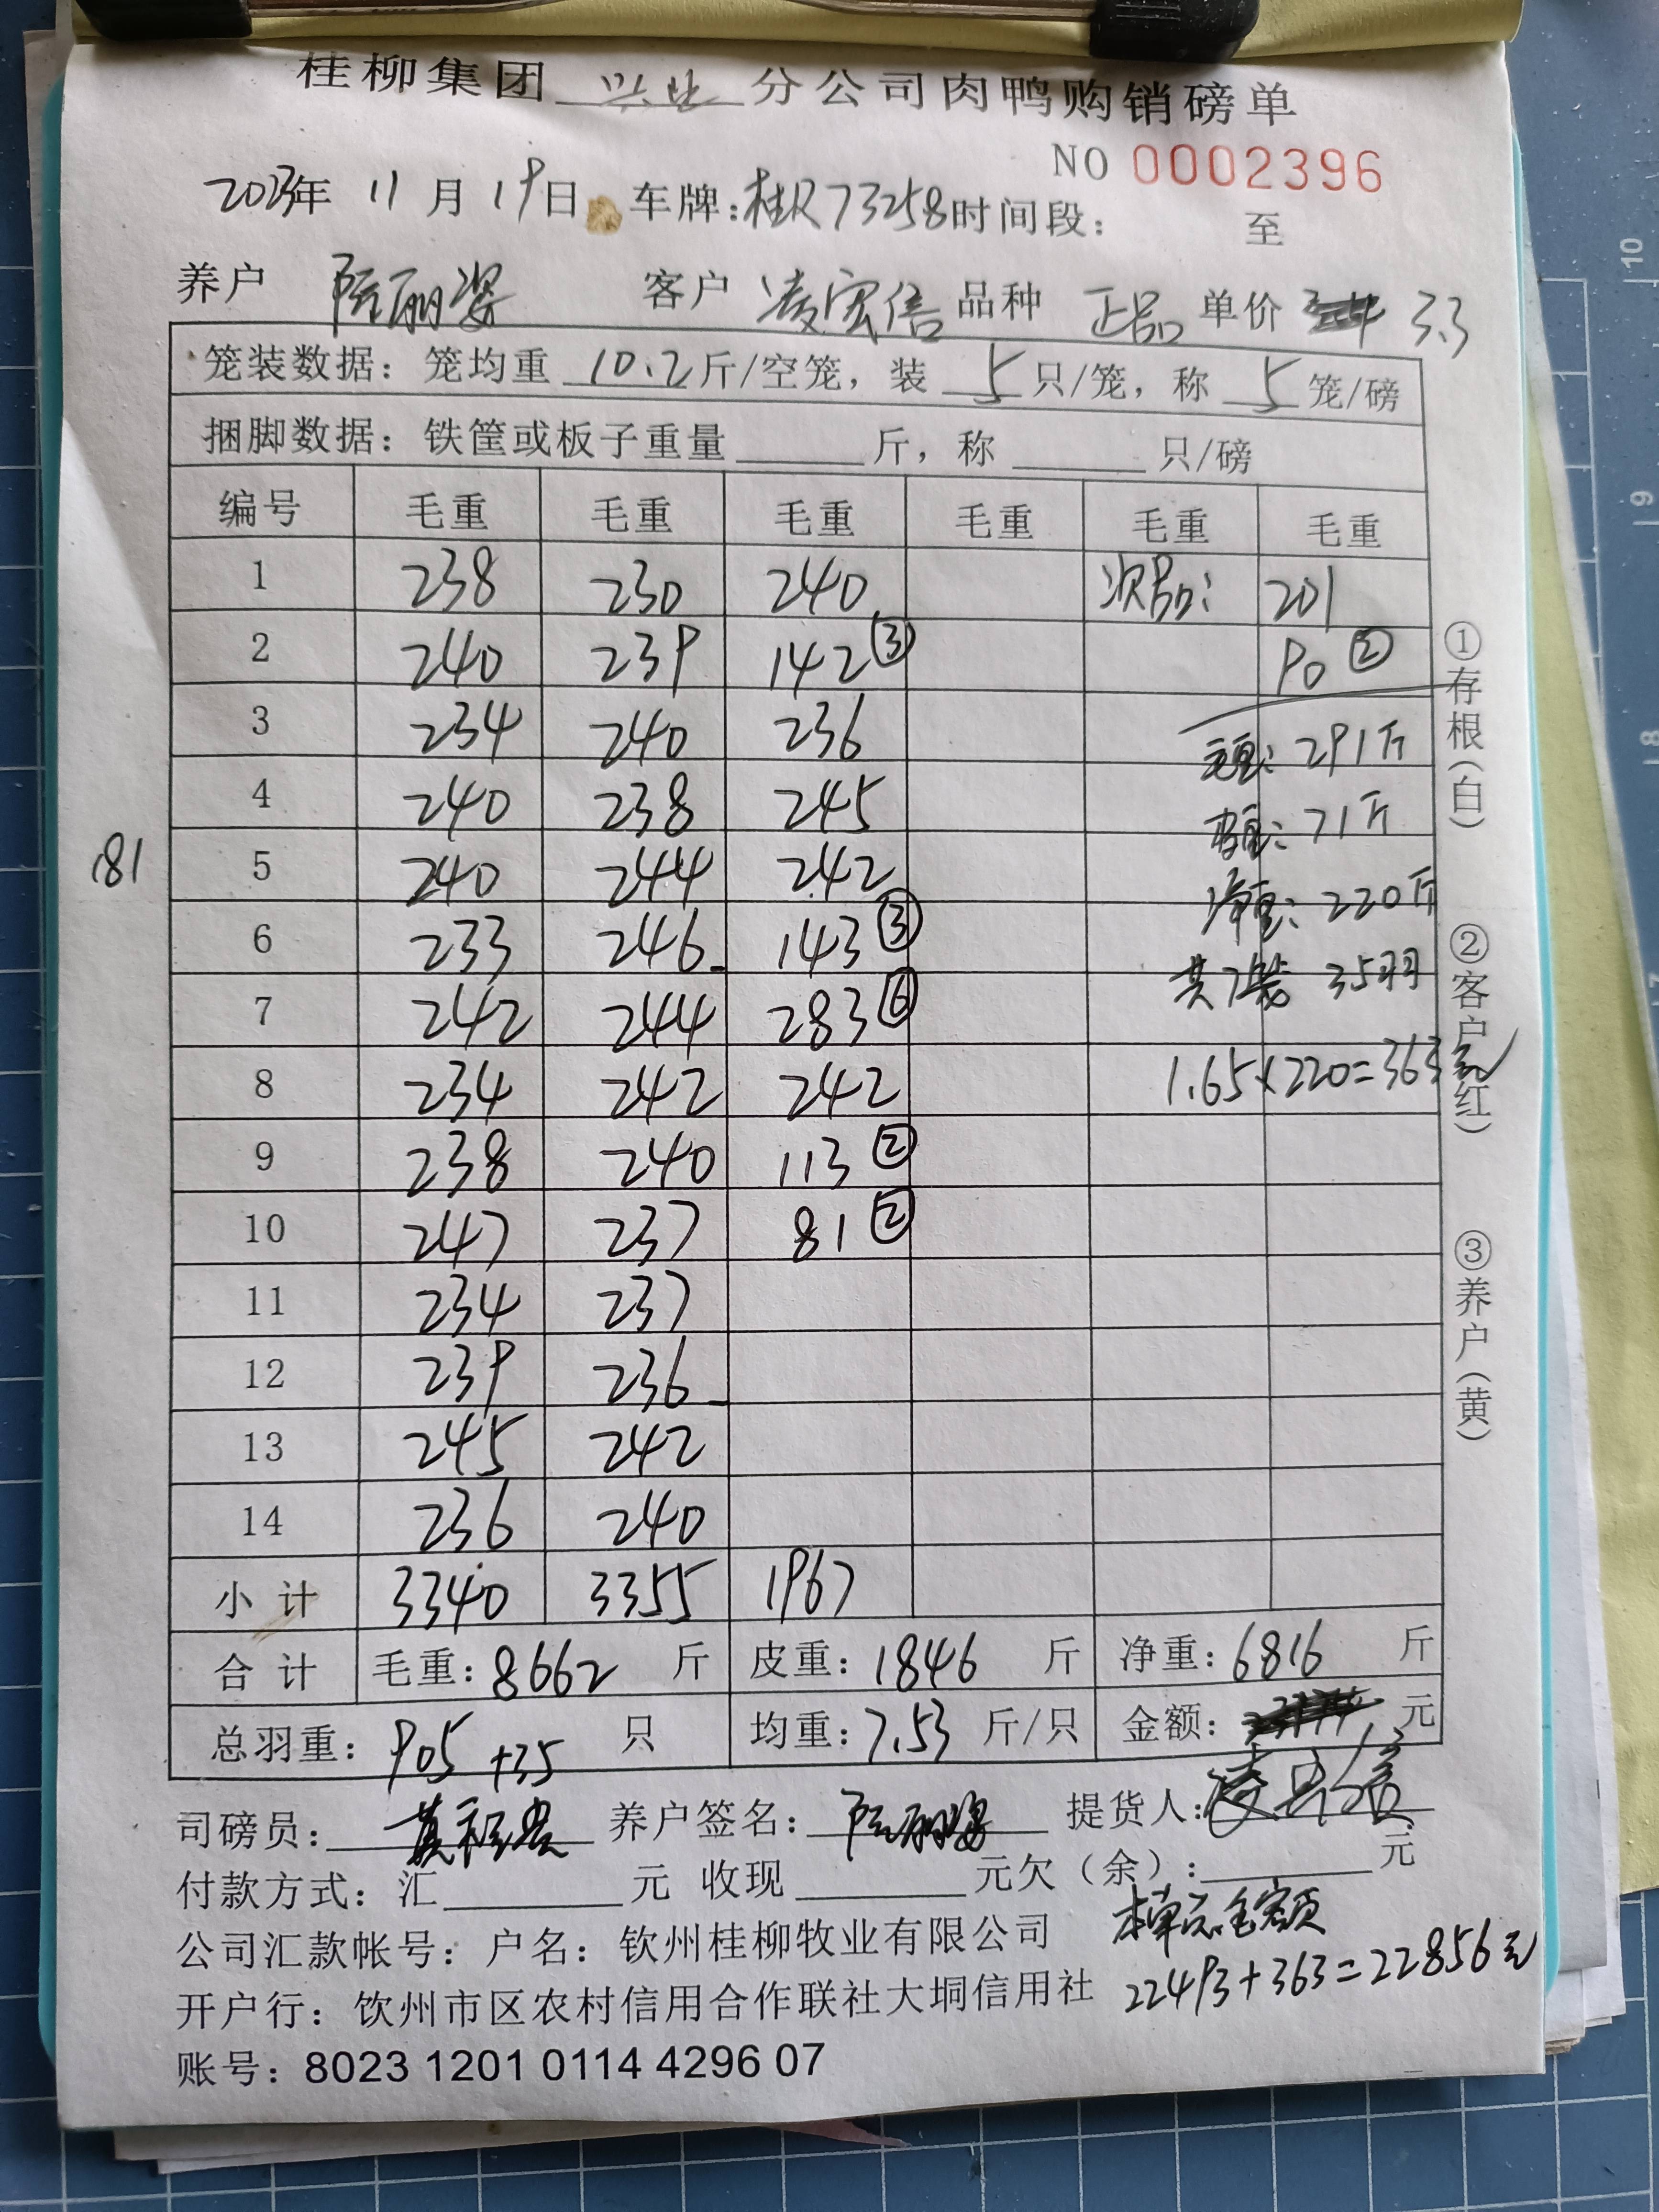 桂柳集团 兴业 分公司肉鸭购销磅单
NO 0002396
2023年 11 月 19 日 车牌:桂R73258 时间段: 至
养户 陆丽姿 客户 凌宏信 品种 正品 单价 3.3
笼装数据: 笼均重 10.2 斤/空笼, 装 5 只/笼, 称 5 笼/磅
捆脚数据: 铁筐或板子重量 斤, 称 只/磅
编号 毛重 毛重 毛重 毛重 毛重 毛重
1 238 230 240 次品: 201
2 240 239 142③ 90②
3 234 240 236 毛重: 291斤
4 240 238 245 皮重: 71斤
181
5 240 244 242 净重: 220斤
6 233 246 143③ 共7装 35羽
7 242 244 283⑥
8 234 242 242 1.65×220=363元
9 238 240 113②
10 247 237 81②
11 234 237
12 239 236
13 245 242
14 236 240
小计 3340 3355 1967
合计 毛重: 8662 斤 皮重: 1846 斤 净重: 6816 斤
总羽重: 905+35 只 均重: 7.53 斤/只 金额: 元
司磅员: 养户签名: 陆丽姿 提货人: 凌宏信
付款方式: 汇 元 收现 元欠(余): 元
公司汇款帐号: 户名: 钦州桂柳牧业有限公司
本单总金额
开户行: 饮州市区农村信用合作联社大垌信用社
22493+363=22856元
账号: 8023 1201 0114 4296 07
①存根(白)
②客户(红)
③养户(黄)